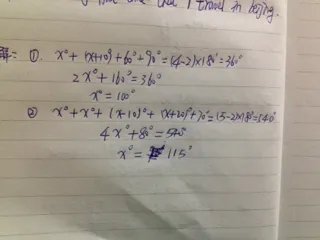 and then I travel in beijing.
解: ①. x°+(x+10)°+60°+90°=(4-2)×180°=360°
2x°+160°=360°
x°=100°
② x°+x°+(x-10)°+(x+20)°+70°=(5-2)×180°=540°
4x°+80°=540°
x°= 115°